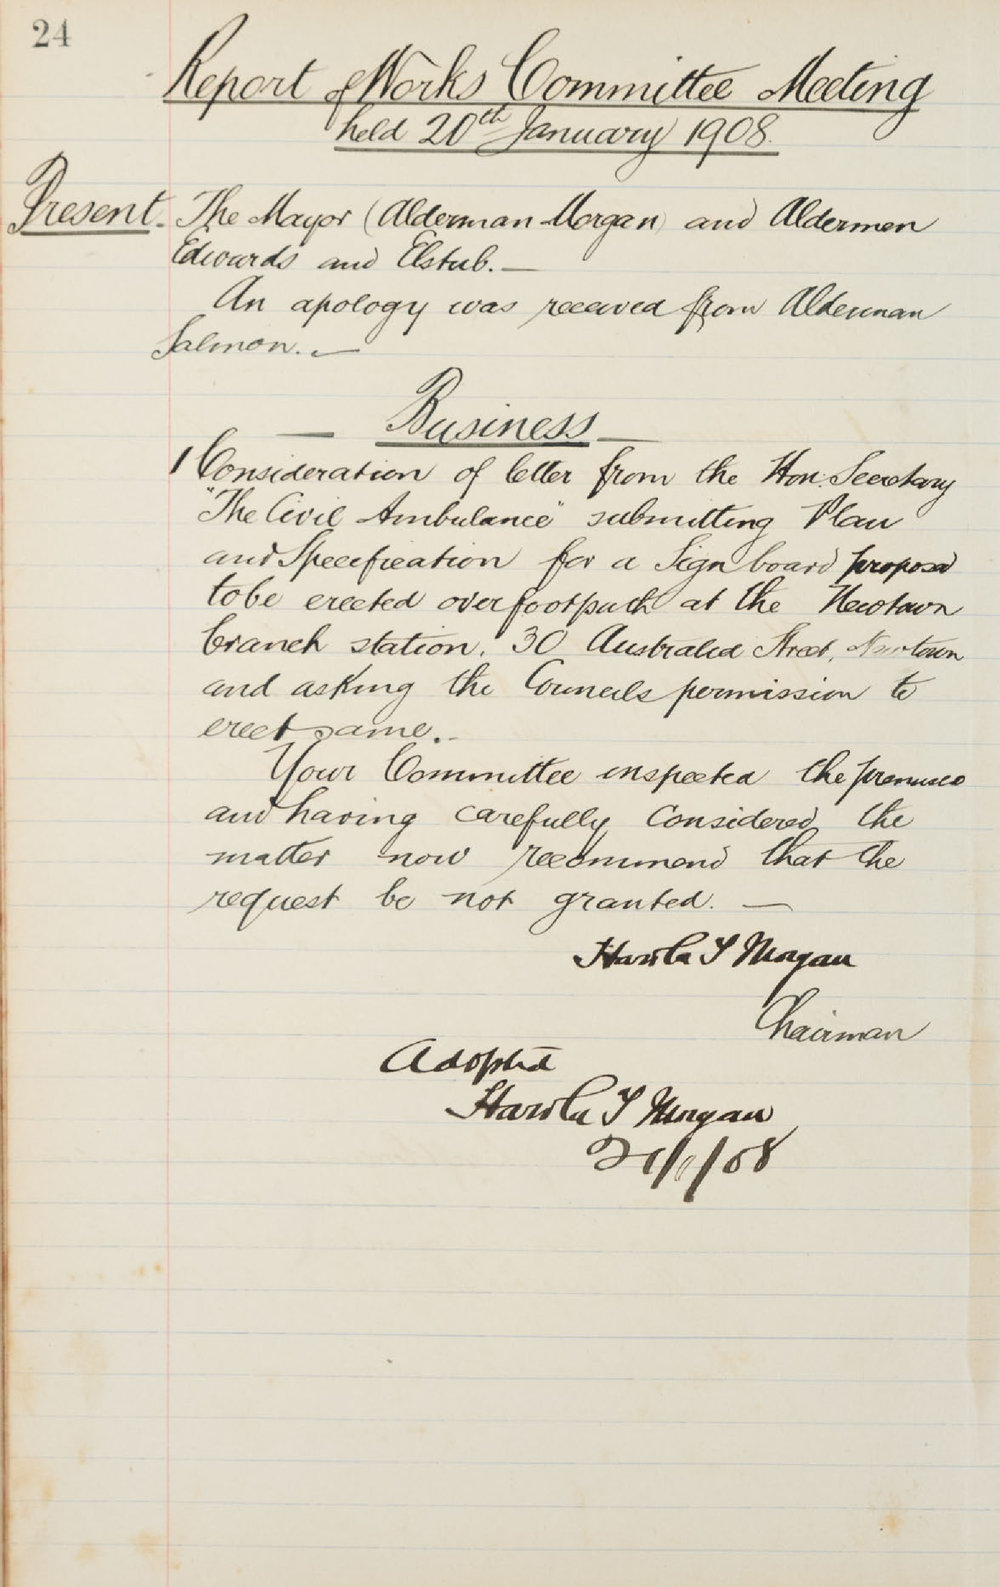 24
Report of Works Committee Meeting
held 20th January 1908.
Present. The Mayor (Alderman Morgan) and Aldermen
Edwards and Elstub. —
An apology was received from Alderman
Salmon. —
— Business —
1 Consideration of letter from the Hon. Secretary
"The Civil Ambulance" submitting Plan
and Specification for a Sign board proposd
to be erected over footpath at the Newtown
branch station. 30 Australia Street, Newtown
and asking the Councils permission to
erect same. -
Your Committee inspected the premises
and having carefully Considered the
matter now recommend that the
request be not granted. —
Harold T Morgan
Chairman
Adopted
Harold T Morgan
21/1/08